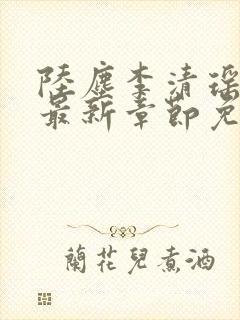 陸塵李清瑤
最新章節免
蘭花兒煮酒